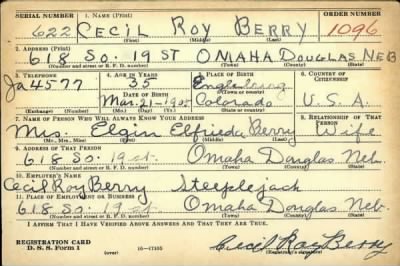 SERIAL NUMBER 1. NAME (Print) ORDER NUMBER
622 CECIL ROY BERRY 1096
(First) (Middle) (Last)
2. ADDRESS (Print)
618 SO. 19 ST OMAHA DOUGLAS NEB
(Number and street or R. F. D. number) (Town) (County) (State)
3. TELEPHONE 4. AGE IN YEARS 5. PLACE OF BIRTH 6. COUNTRY OF CITIZENSHIP
Ja 4577 35
DATE OF BIRTH (Town or county)
Mar. 21-1905 Colorado U.S.A.
(Exchange) (Number) (Mo.) (Day) (Yr.) (State or country)
7. NAME OF PERSON WHO WILL ALWAYS KNOW YOUR ADDRESS 8. RELATIONSHIP OF THAT PERSON
Mrs. Elgin Elfrieda Berry Wife
(Mr., Mrs., Miss) (First) (Middle) (Last)
9. ADDRESS OF THAT PERSON
618 So. 19 st. Omaha Douglas Neb.
(Number and street or R. F. D. number) (Town) (County) (State)
10. EMPLOYER'S NAME
Cecil Roy Berry Steeplejack
11. PLACE OF EMPLOYMENT OR BUSINESS
618 So. 19 st. Omaha Douglas Neb.
(Number and street or R. F. D. number) (Town) (County) (State)
I AFFIRM THAT I HAVE VERIFIED ABOVE ANSWERS AND THAT THEY ARE TRUE.
REGISTRATION CARD
D. S. S. Form 1 (over) 16-17105 Cecil Roy Berry
(Registrant's signature)